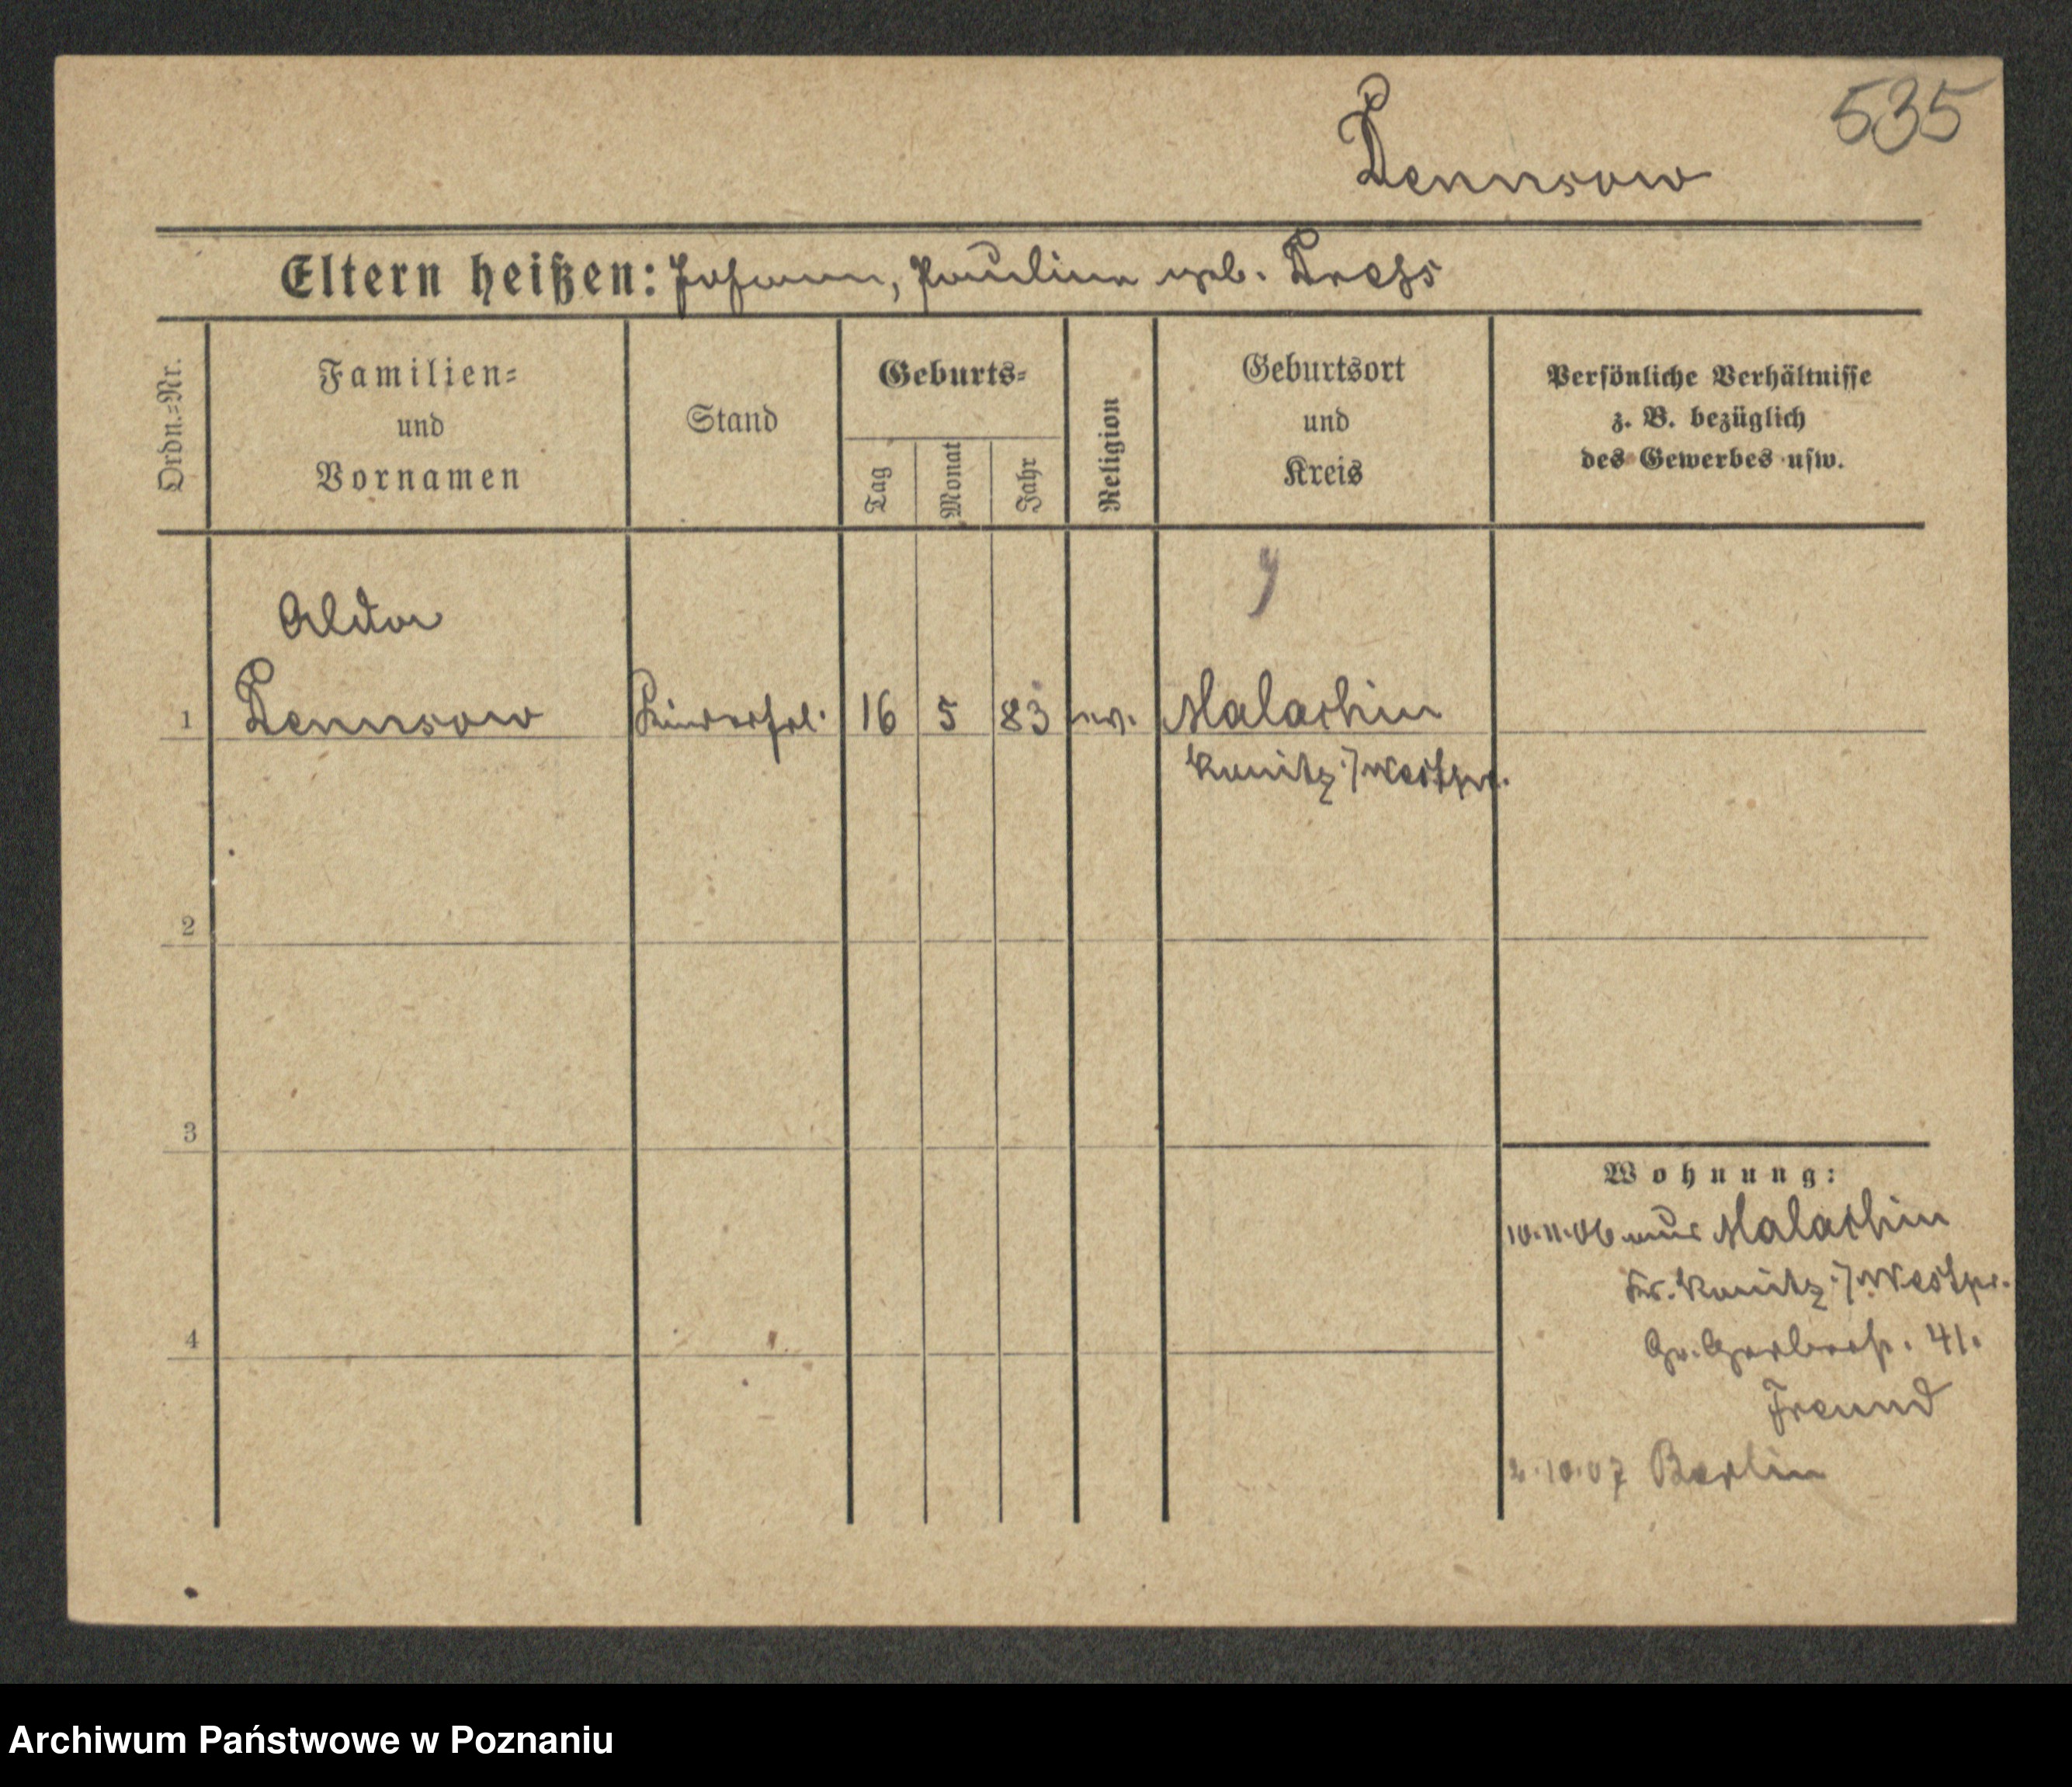 535
Dennsow
Eltern heißen: Johann, Pauline geb.
Ordn.-Nr.
Familien-
und
Vornamen
Stand
Geburts-
Tag
Monat
Jahr
Religion
Geburtsort
und
Kreis
Persönliche Verhältnisse
z. B. bezüglich
des Gewerbes usw.
1 Dennsow Kinderfrl. 16 5 83 ev. Malachin
Konitz i/Westpr.
2
3
Wohnung:
10.11.06 aus Malachin
Kr. Konitz i/Westpr.
4
Gr. Gerberstr. 41.
Freund
2.10.07 Berlin
Archiwum Państwowe w Poznaniu